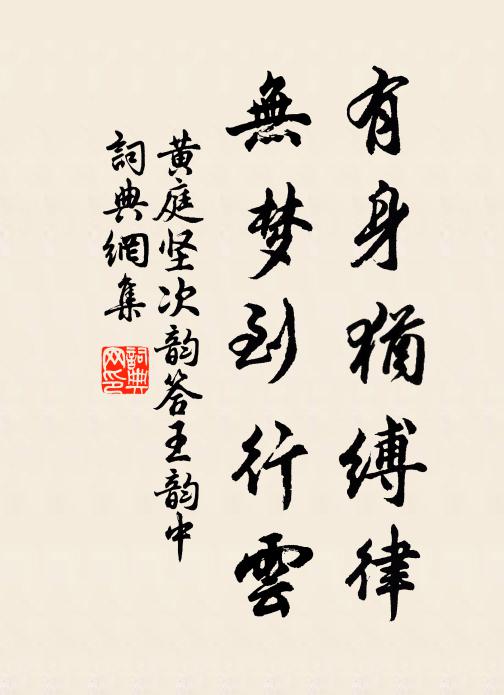 有身猶缚律
無梦到行雲
黄庭坚次韵答王韵中
詞典網集
詞典网印